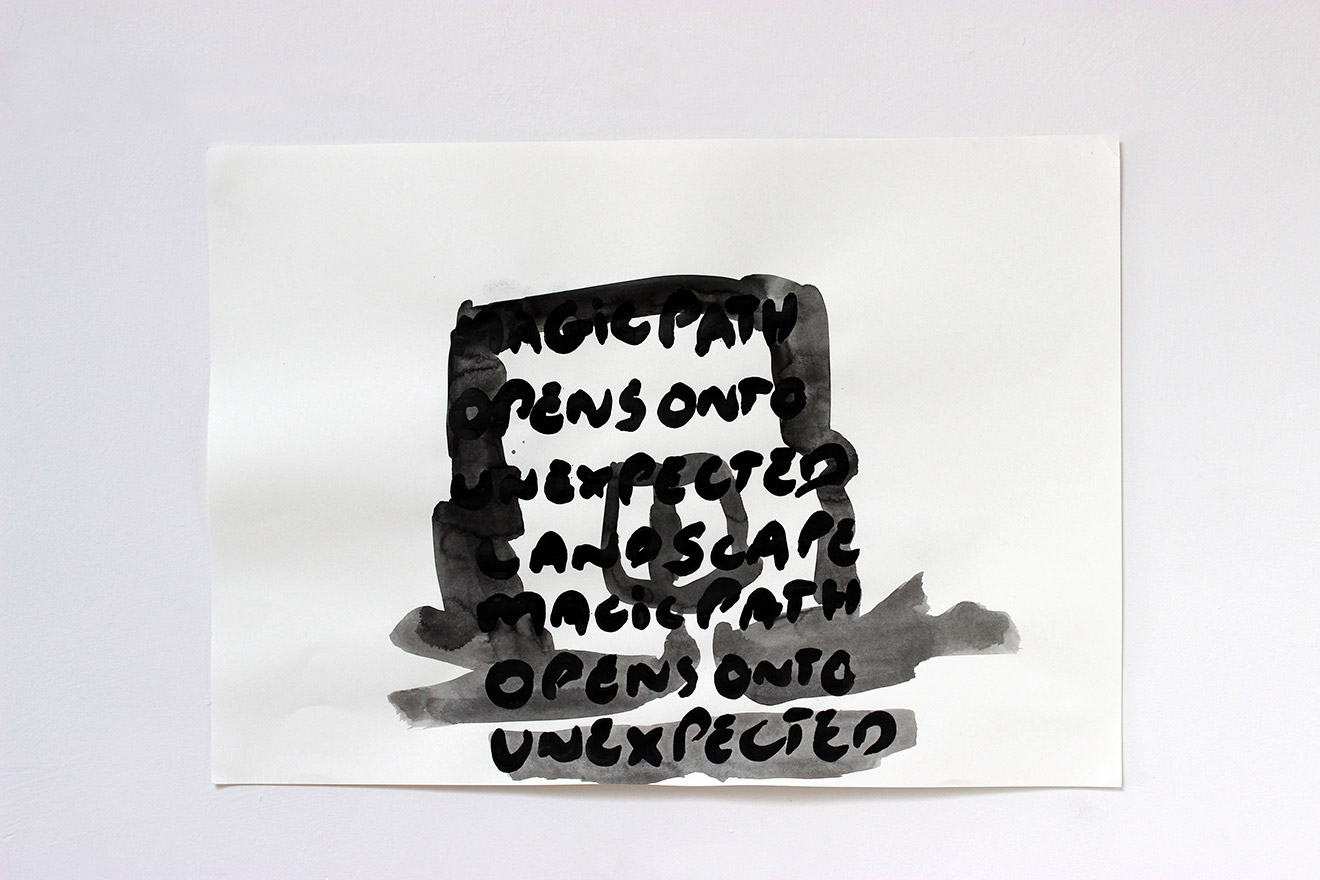 MAGIC PATH
OPENS ONTO
UNEXPECTED
LANDSCAPE
MAGIC PATH
OPENS ONTO
UNEXPECTED